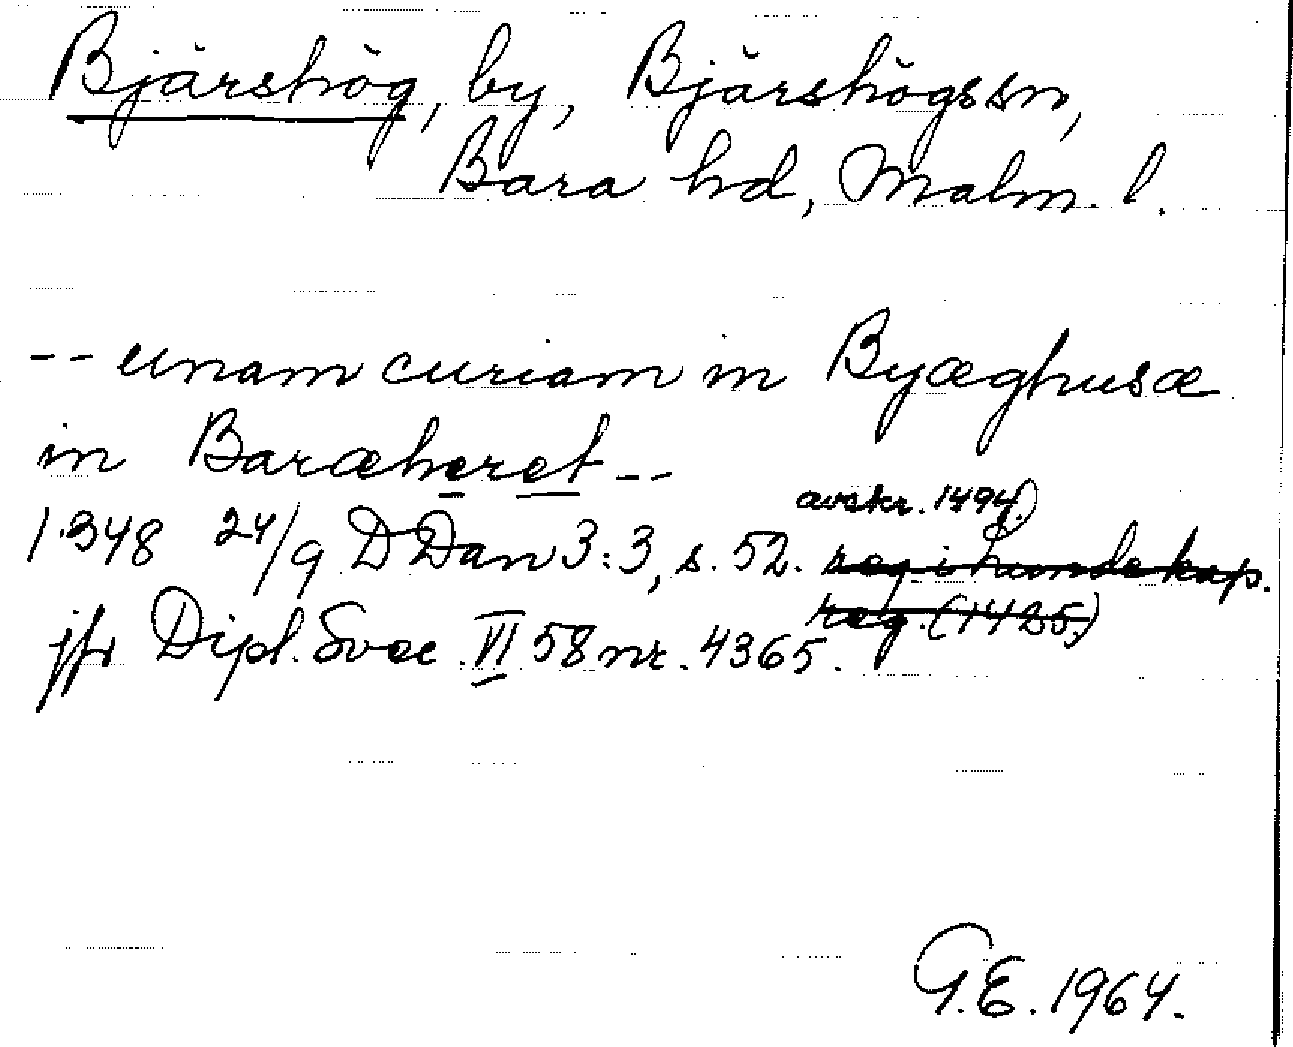 Bjärshög, by, Bjärshögs sn,
Bara hd, Malm. l.
-- unam curiam in Byæghusæ
in Baræheret --
avskr. 1494.)
1348 24/9 DDan 3:3, s. 52. reg i Lunde kap.
reg. (1425.)
jfr Dipl. Svec. VI 58 nr. 4365.
G.E. 1964.